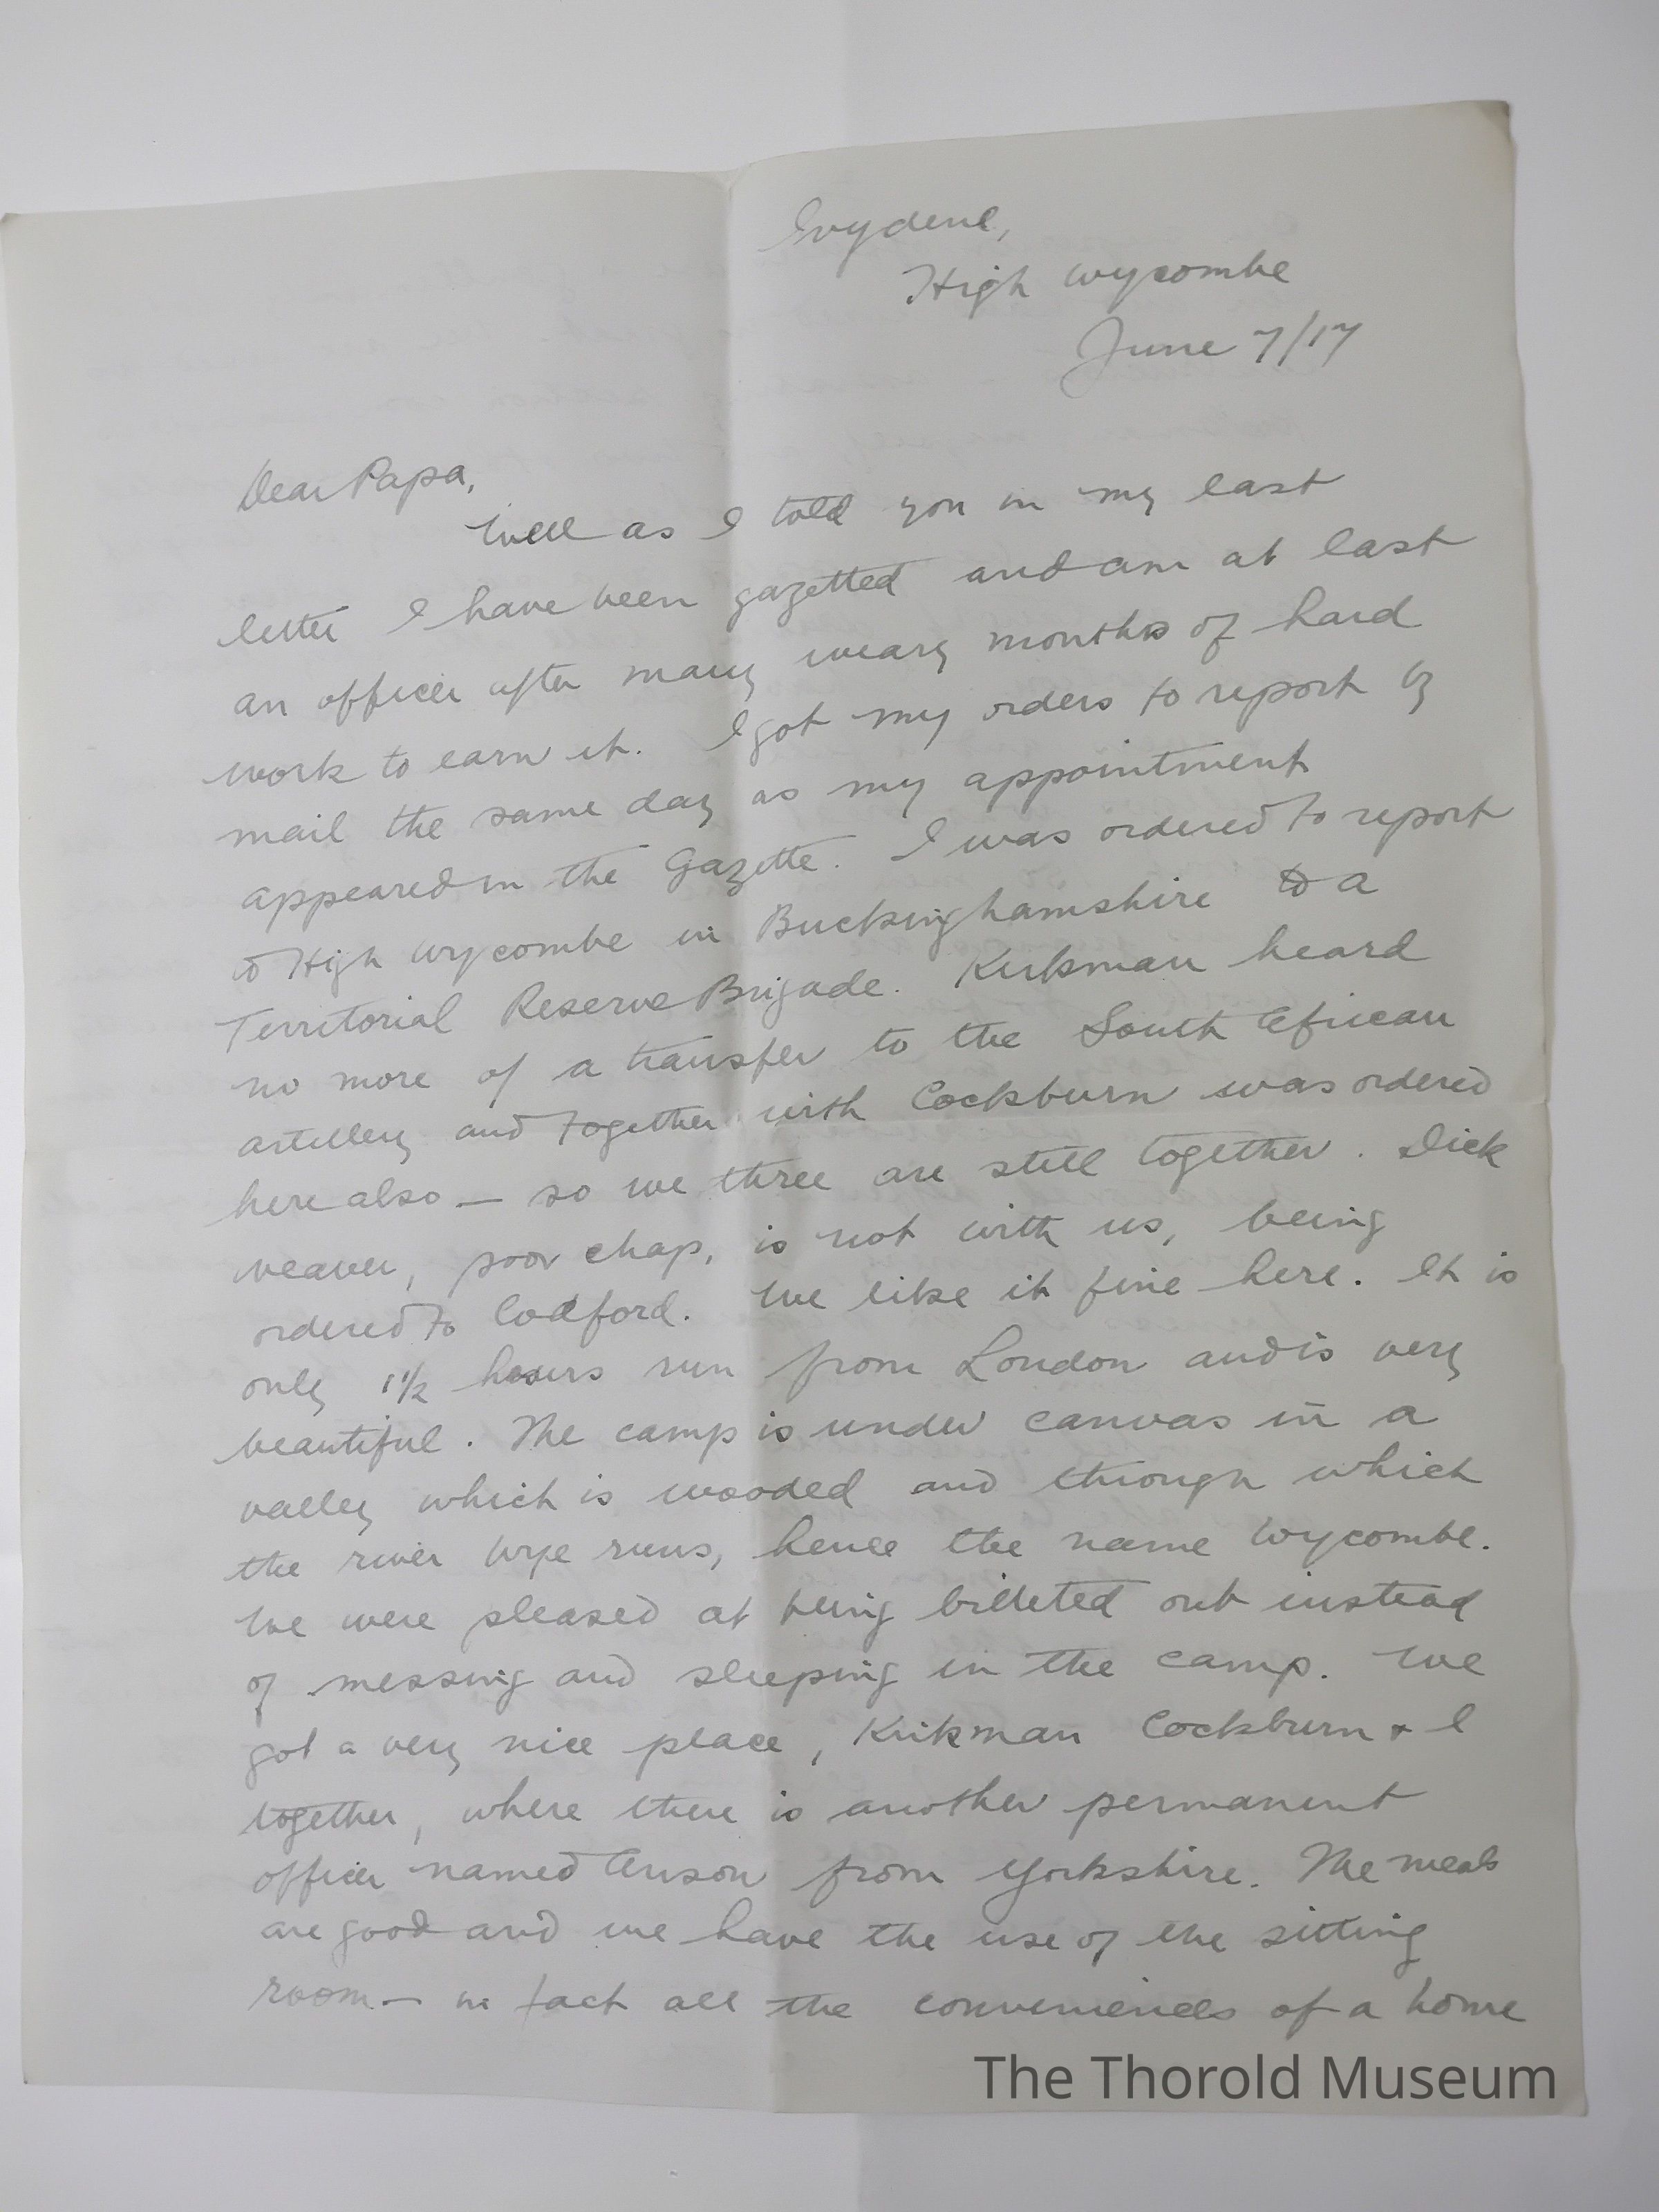 Ivydene,
High Wycombe
June 7/17
Dear Papa,
Well as I told you in my last
letter I have been gazetted and am at last
an officer after many weary months of hard
work to earn it. I got my orders to report by
mail the same day as my appointment
appeared in the Gazette. I was ordered to report
to High Wycombe in Buckinghamshire to a
Territorial Reserve Brigade. Kirkman heard
no more of a transfer to the South African
artillery and together with Cockburn was ordered
here also — so we three are still together. Dick
Weaver, poor chap, is not with us, being
ordered to Codford. We like it fine here. It is
only 1½ hours run from London and is very
beautiful. The camp is under canvas in a
valley which is wooded and through which
the river Wye runs, hence the name Wycombe.
We were pleased at being billeted out instead
of messing and sleeping in the camp. We
got a very nice place, Kirkman Cockburn + I
together, where there is another permanent
officer named Anson from Yorkshire. The meals
are good and we have the use of the sitting
room — in fact all the conveniences of a home
The Thorold Museum